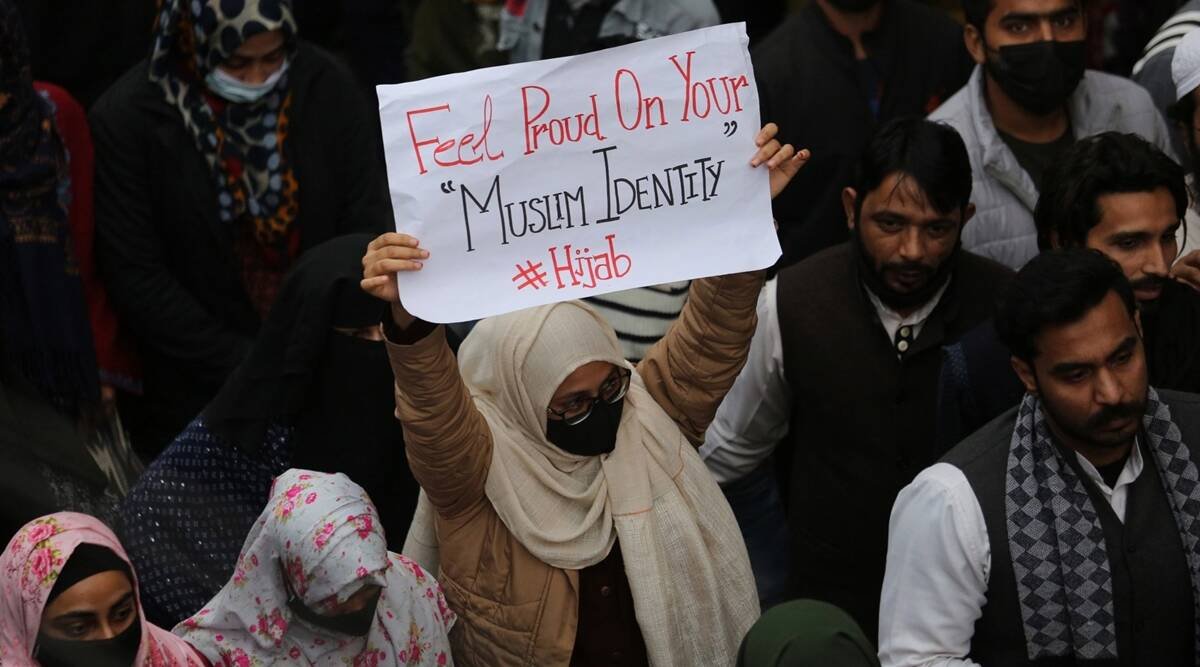 Feel Proud On Your
“Muslim Identity”
#Hijab